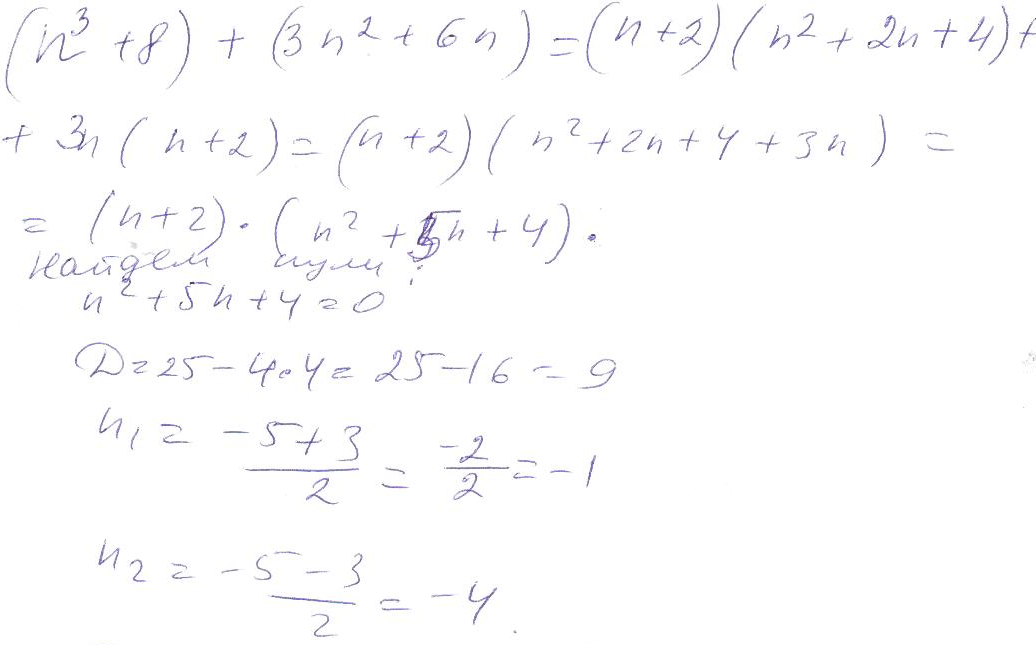 (n³ + 8) + (3n² + 6n) = (n + 2)(n² + 2n + 4) +
+ 3n(n + 2) = (n + 2)(n² + 2n + 4 + 3n) =
= (n + 2) · (n² + 5n + 4).
Найдем нули:
n² + 5n + 4 = 0
D = 25 − 4·4 = 25 − 16 = 9
n₁ = (−5 + 3)/2 = −2/2 = −1
n₂ = (−5 − 3)/2 = −4.